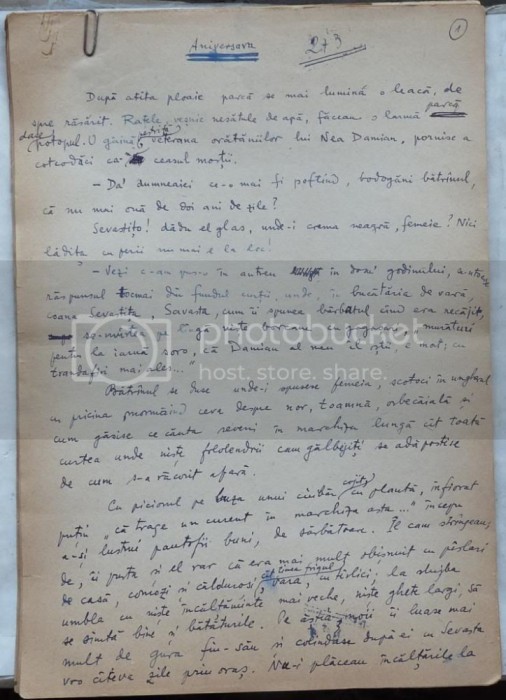 1
Aniversara
273
După atita ploaie parcă se mai lumină o leacă, de
spre răsărit. Ratele, veșnic nesătule de apă, făceau o larmă parcă
dase potopul. O găină veterana orătăniilor lui Nea Damian, pornise a
cotcodăci ca ceasul morții.
- Da' dumneaei ce-o mai fi poftind, bodogăni bătrînul,
că nu mai ouă de doi ani de zile?
Sevastițo! dădu el glas, unde-i crema neagră, femeie? Nici
lădița cu perii nu mai e la loc!
- Vezi c-am pus-o în antreu în dosu' godinului,
răspunsul tocmai din fundul curții, unde, în bucătăria de vară,
coana Sevastița, Savasta, cum îi spunea bărbatul cînd era necăjit,
niște borcane murături
pentru la iarnă soro, că Damian al meu
trandafiri mai ales..."
Bătrînul se duse unde-i spusese femeia, scotoci în ungherul
cu pricina mormăind ceva despre nor, toamnă, orbecăială și
cum găsise ce căuta reveni în marchiza lungă cît toată
curtea unde niște filodendri cam gălbejiți se adăpostise
de cum s-a răcorit afară.
Cu piciorul pe buza unui ciubăr cu plantă, înfiorat
puțin "că trage un curent în marchiza asta..." începu
a-și lustrui pantofii buni, de sărbătoare. Îl cam strîngeau,
de, îi purta și el rar că era mai mult obișnuit cu pîslari
de casă, comozi și călduroși, cît ținea frigul, vara, cu tîrlici; la slujbă
umbla cu niște încălțăminte mai veche, niște ghete largi, să
se simtă bine și bătăturile. Pe ăștia noii îi luase mai
mult de gura fiu-său și colindase după ei cu Sevasta
vro cîteva zile prin oraș. Nu-i plăceau încălțările la
photobucket
host. store. share.